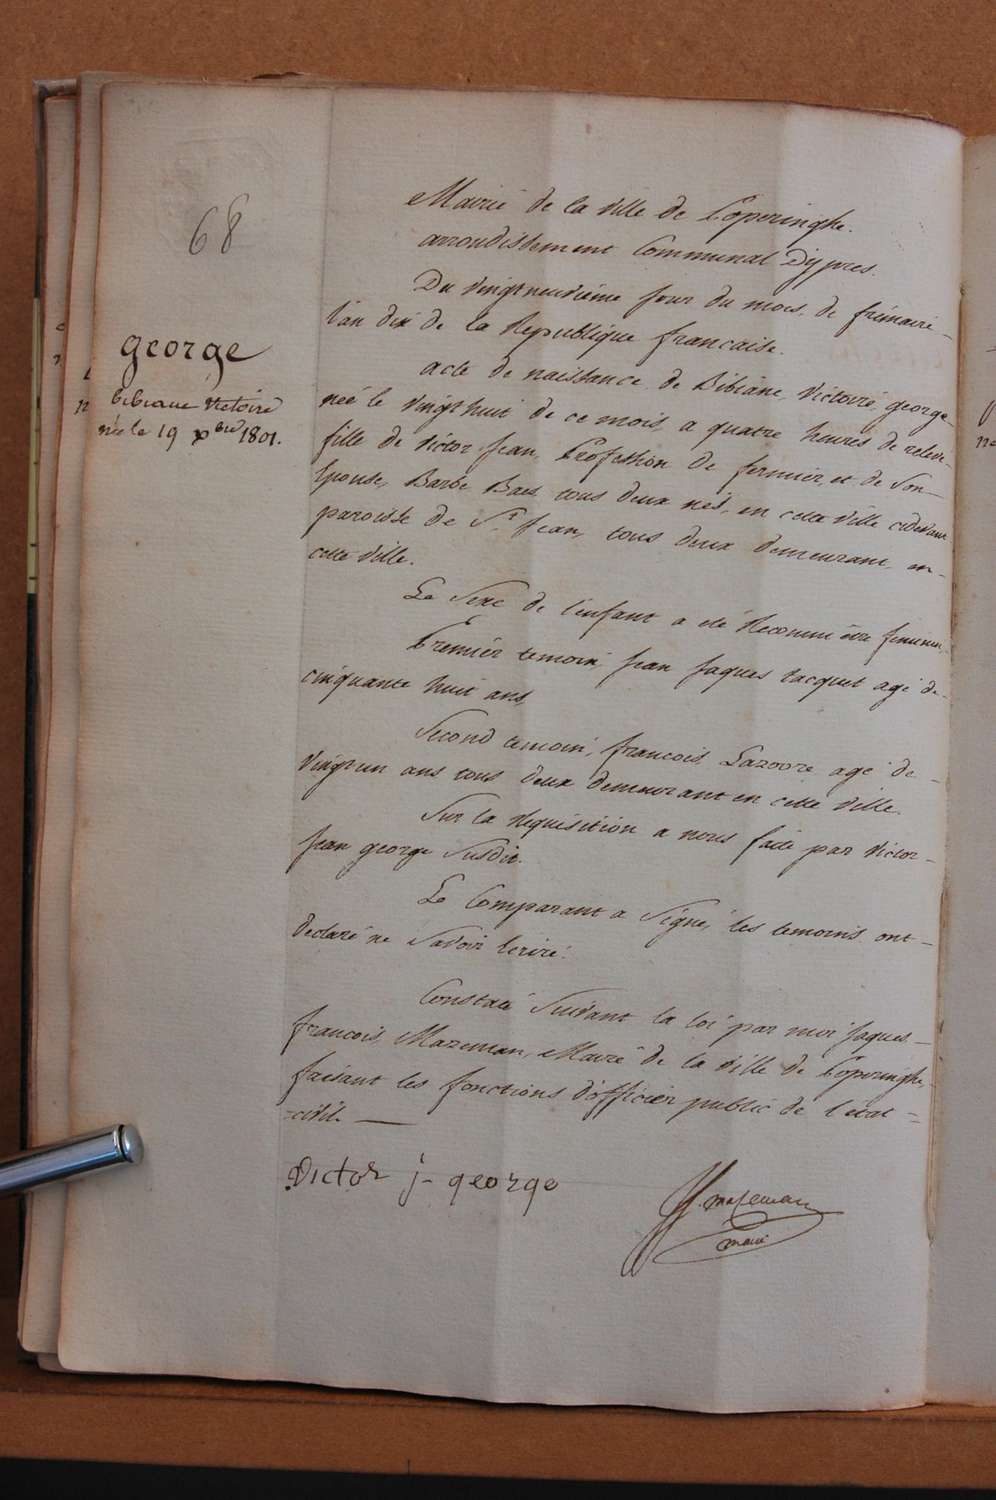 68
george
bibiane victoire
née le 19 xbre 1801.
Mairie de la ville de Poperinghe.
arrondissement Communal D'ypres.
Du vingt neuvième jour du mois de frimaire
l'an dix de la Republique francaise.
acte de naissance de Bibiane, victoire, george
née le vingt huit de ce mois a quatre heures de relevé
fille de victor jean, Profession de fermier, et de Son
Epouse, Barbe Baes, tous deux nés, en cette ville cidevant
paroisse de St jean, tous deux demeurant en
cette ville.
Le Sexe de l'enfant a eté Reconnu être feminin,
Premier temoin, jean jaques tacquet agé de
cinquante huit ans,
Second temoin, francois agé de
vingt un ans tous deux demeurant en cette ville.
Sur la Requisition a nous faite par victor
jean george Susdit.
Le Comparant a Signé, les temoins ont
declaré ne Savoir Ecrire.
Constaté Suivant la loi par moi jaques
francois, Mazeman, Maire de la ville de Poperinghe,
faisant les fonctions d'officier public de l'état
civil.
Victor j- george
mazeman
maire